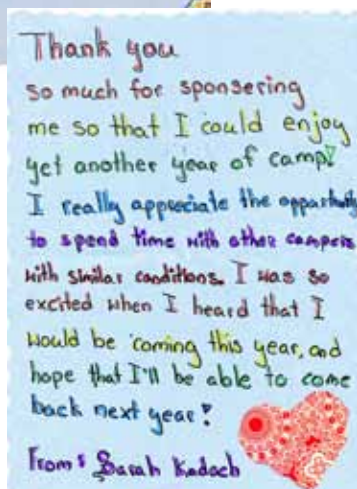 Thank you
so much for sponsering
me so that I could enjoy
yet another year of camp!
I really appreciate the opportunity
to spend time with other campers
with similar conditions. I was so
excited when I heard that I
would be coming this year, and
hope that I'll be able to come
back next year!
From: Sarah Kadoch